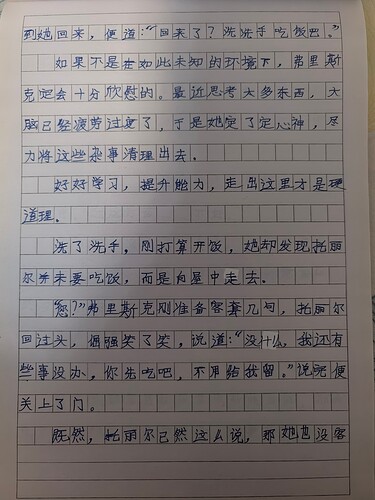 到她回来，便道：“回来了？洗洗手吃饭吧。”
如果不是在如此未知的环境下，弗里斯
克定会十分欣慰的。最近思考太多东西，大
脑已经疲劳过度了，于是她定了定心神，尽
力将这些杂事清理出去。
好好学习，提升能力，走出这里才是硬
道理。
洗了洗手。刚打算开饭，她却发现托丽
尔并未要吃饭，而是向屋中走去。
“您？”弗里斯克刚准备客套几句，托丽尔
回过头，倔强笑了笑，说道：“没什么，我还有
些事没办，你先吃吧，不用给我留。”说完便
关上了门。
既然，托丽尔已然这么说，那她也没客